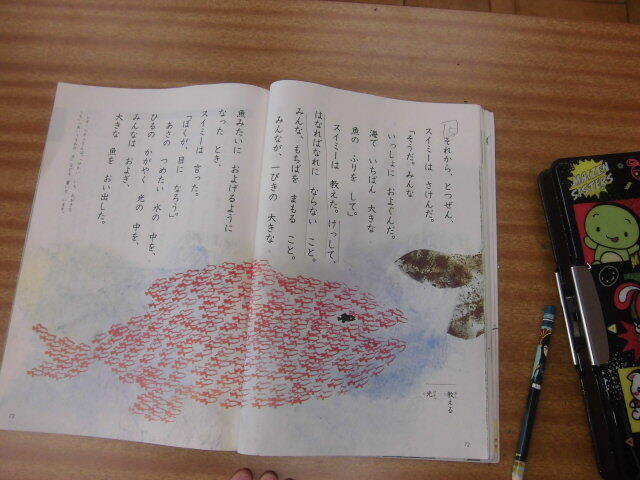 それから、とつぜん、
スイミーは さけんだ。
「そうだ。みんな
いっしょに およぐんだ。
海で いちばん 大きな
魚の ふりを して。」
スイミーは 教えた。けっして、
はなればなれに ならない こと。
みんな、もちばを まもる こと。
みんなが、一ぴきの 大きな
魚みたいに およげるように
なった とき、
スイミーは 言った。
「ぼくが、目に なろう。」
あさの つめたい 水の 中を、
ひるの かがやく 光の 中を、
みんなは およぎ、
大きな 魚を おい出した。
教える
光
72
73